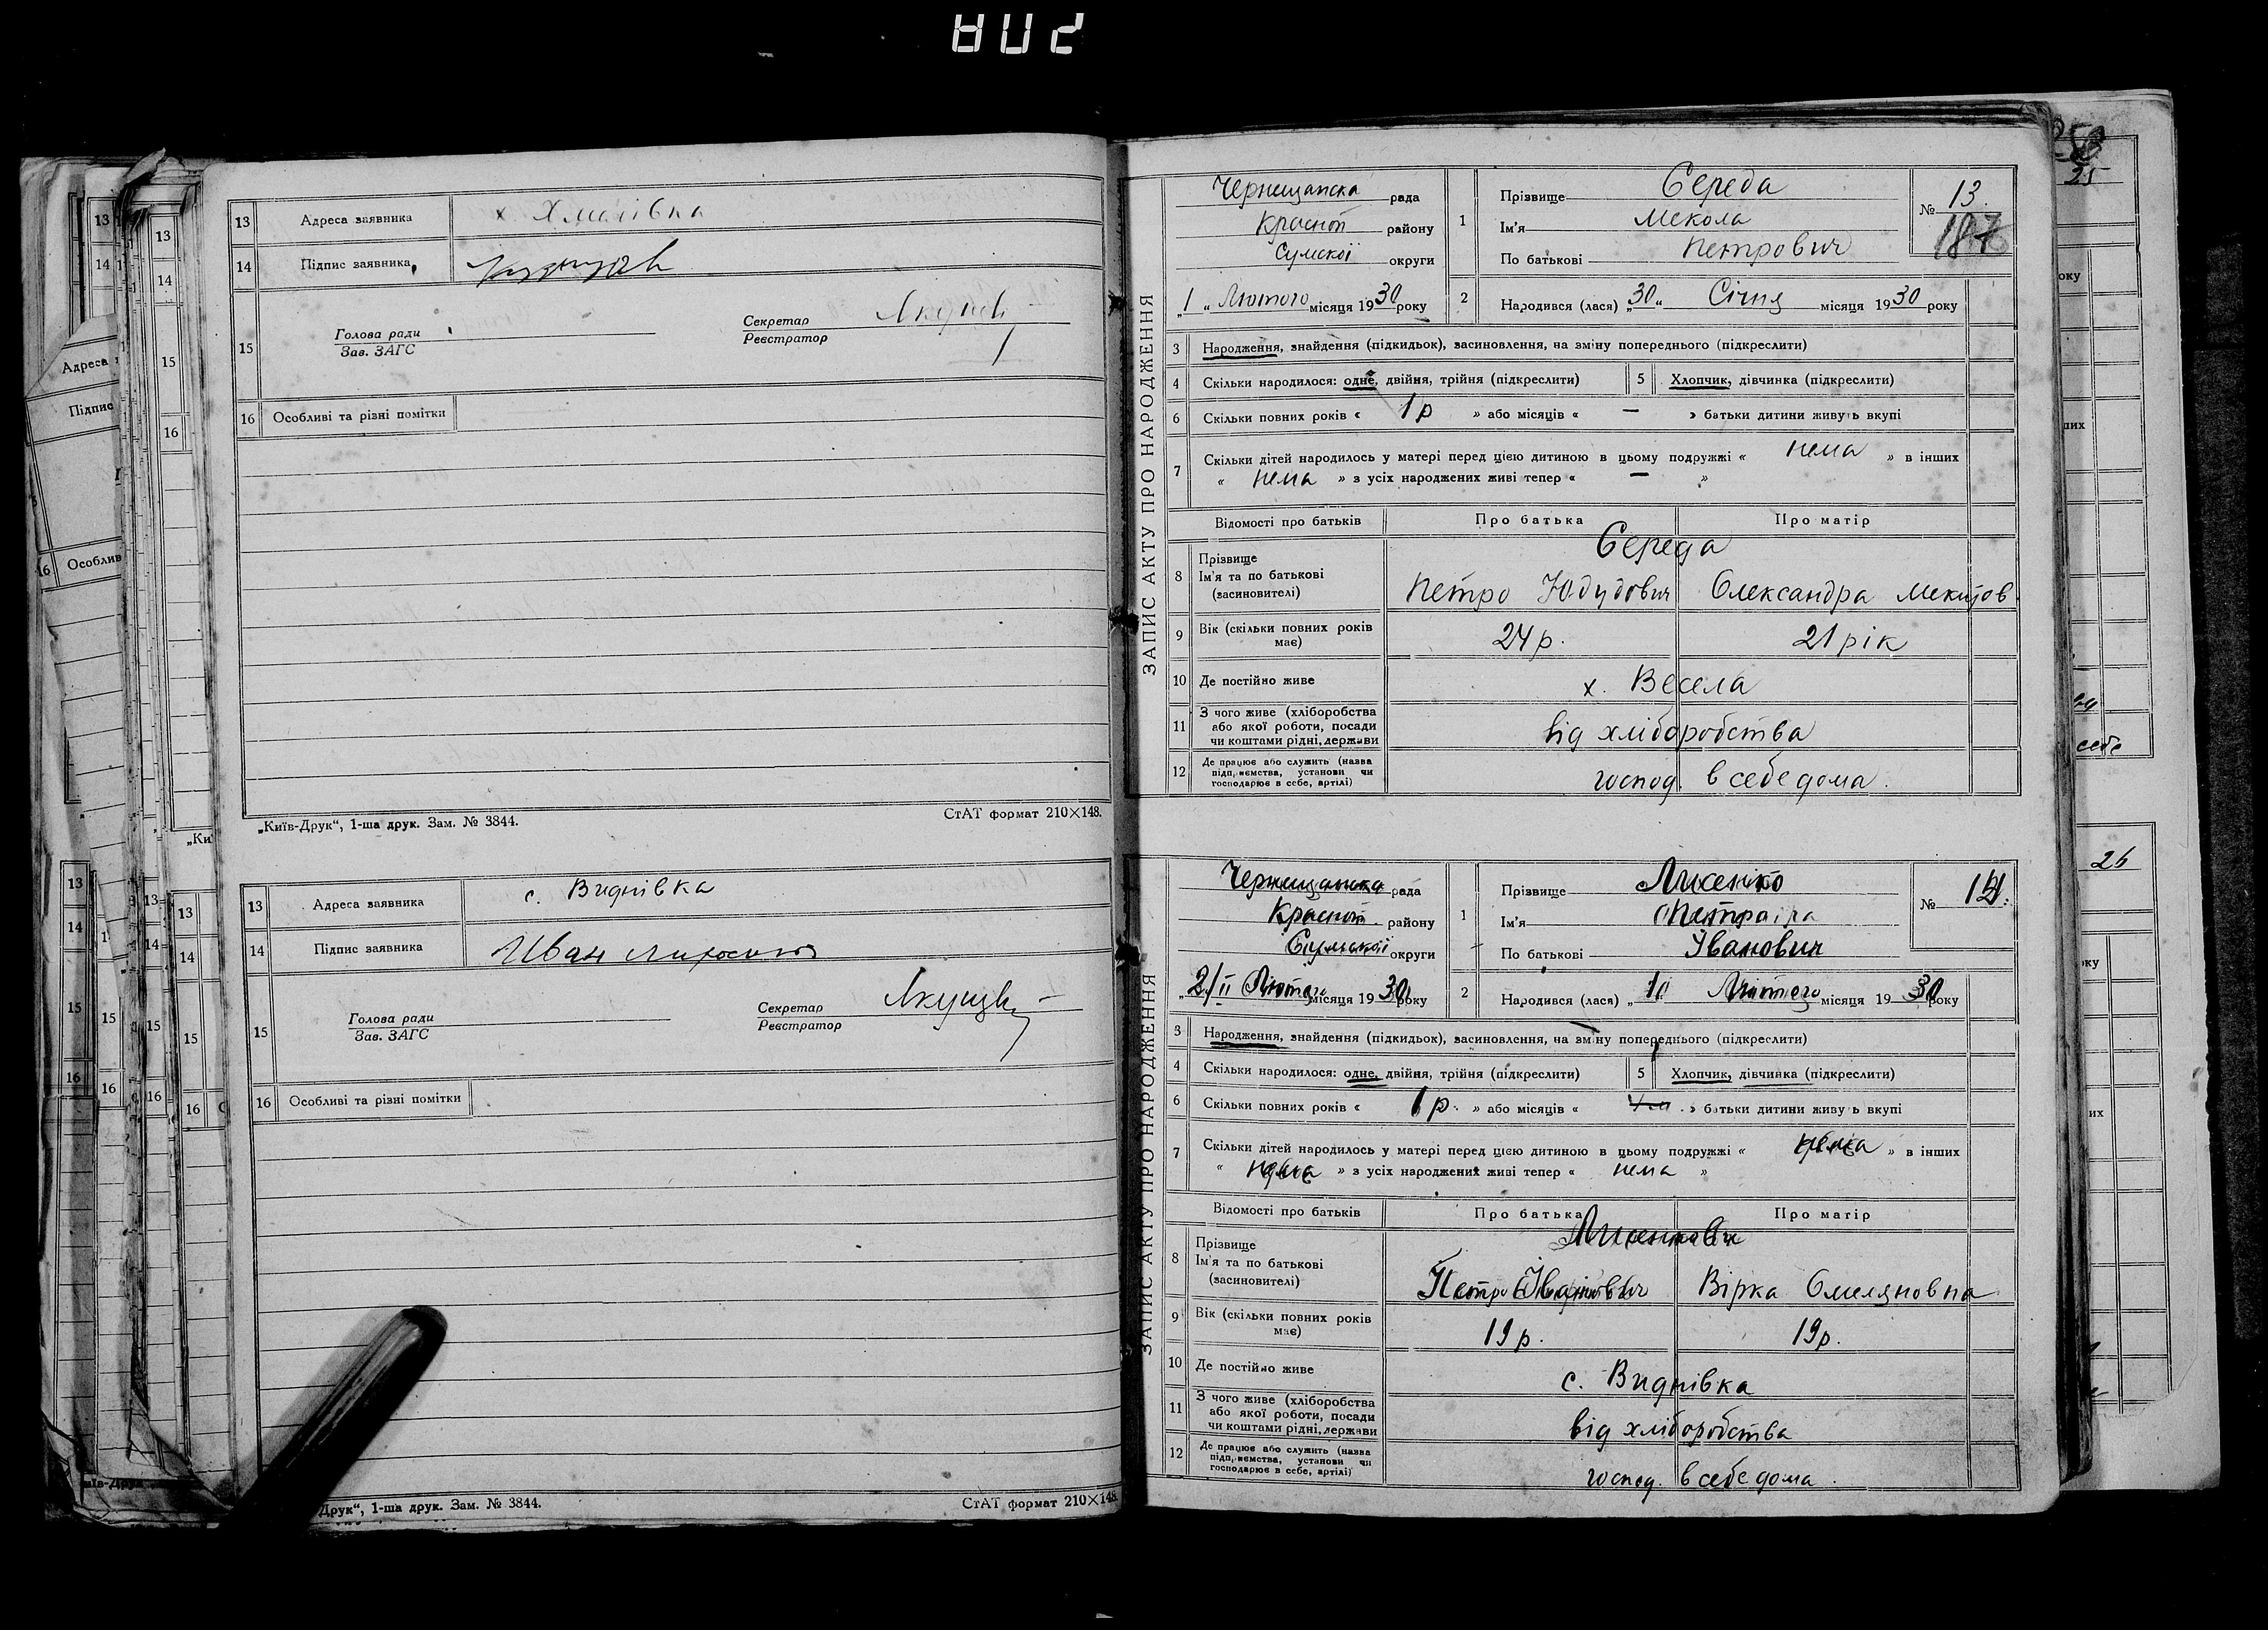 13 Адреса заявника х Хмалівка
14 Підпис заявника
15 Голова ради
Зав. ЗАГС
Секретар
Реєстратор
16 Особливі та різні помітки
„Київ-Друк“, 1-ша друк. Зам. № 3844.
СтАТ формат 210×148.
13 Адреса заявника с. Виднівка
14 Підпис заявника Иван
15 Голова ради
Зав. ЗАГС
Секретар
Реєстратор
16 Особливі та різні помітки
Друк“, 1-ша друк. Зам. № 3844.
СтАТ формат 210×148.
ЗАПИС АКТУ ПРО НАРОДЖЕННЯ
Чернещанска рада
Красноп району
Сумскої округи
„1“ Лютого місяця 1930 року
1 Прізвище Середа
Ім'я Мекола
По батькові Петрович
№ 13.
187
2 Народився (лася) „30“ Січня місяця 1930 року
3 Народження, знайдення (підкидьок), засиновлення, на зміну попереднього (підкреслити)
4 Скільки народилося: одне, двійня, трійня (підкреслити)
5 Хлопчик, дівчинка (підкреслити)
6 Скільки повних років « 1 р » або місяців « — » батьки дитини живуть вкупі
7 Скільки дітей народилось у матері перед цією дитиною в цьому подружжі « нема » в інших
« нема » з усіх народжених живі тепер « — »
Відомості про батьків Про батька Про матір
8 Прізвище Середа
Ім'я та по батькові Петро Юдудович Олександра
(засиновителі)
9 Вік (скільки повних років має) 24 р. 21 рік
10 Де постійно живе х. Весела
11 З чого живе (хліборобства
або якої роботи, посади
чи коштами рідні, держави
від хліборобства
12 Де працює або служить (назва
підприємства, установи чи
господарює в себе, артілі)
господ. в себе дома.
ЗАПИС АКТУ ПРО НАРОДЖЕННЯ
рада
Красноп району
округи
Лютого місяця 1930 року
1 Прізвище
Ім'я
По батькові Іванович
№
2 Народився (лася) Лютого місяця 1930 року
3 Народження, знайдення (підкидьок), засиновлення, на зміну попереднього (підкреслити)
4 Скільки народилося: одне, двійня, трійня (підкреслити)
5 Хлопчик, дівчинка (підкреслити)
6 Скільки повних років « 1 р. » або місяців « » батьки дитини живуть вкупі
7 Скільки дітей народилось у матері перед цією дитиною в цьому подружжі « нема » в інших
« нема » з усіх народжених живі тепер « нема »
Відомості про батьків Про батька Про матір
8 Прізвище
Ім'я та по батькові Петро Вірка Омеляновна
(засиновителі)
9 Вік (скільки повних років має) 19 р. 19 р.
10 Де постійно живе с. Виднівка
11 З чого живе (хліборобства
або якої роботи, посади
чи коштами рідні, держави
від хліборобства
12 Де працює або служить (назва
підприємства, установи чи
господарює в себе, артілі)
господ. в себе дома.
25
26